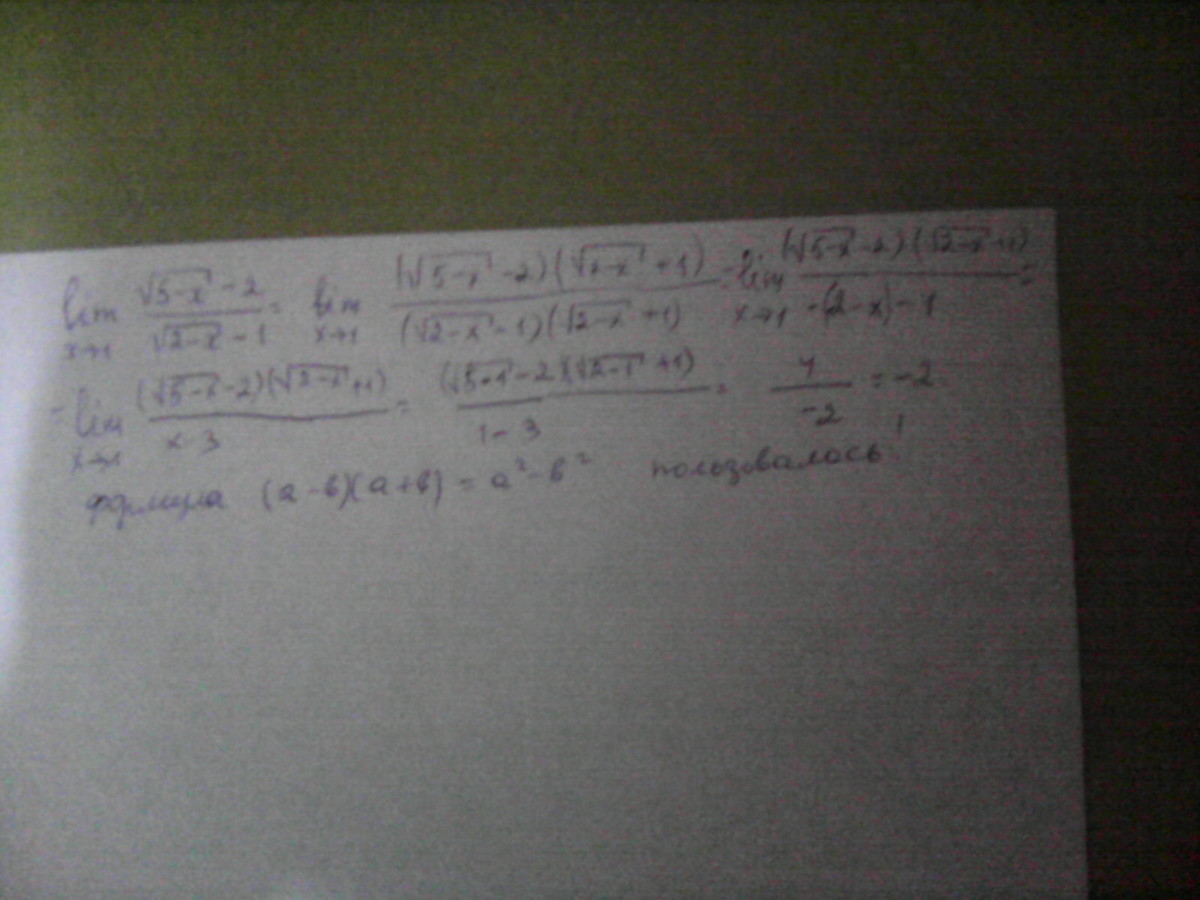 lim x→1 (√(5-x) -2)/(√(2-x) -1) = lim x→1 ((√(5-x) -2)(√(2-x) +1))/((√(2-x) -1)(√(2-x) +1)) = lim x→1 ((√(5-x) -2)(√(2-x) +1))/(-(2-x) -1) =
= lim x→1 ((√(5-x) -2)(√(2-x) +1))/(x-3) = ((√(5+1) -2)(√(2-1) +1))/(1-3) = 4/-2 = -2.
формула (a-b)(a+b) = a²-b² пользовалось!